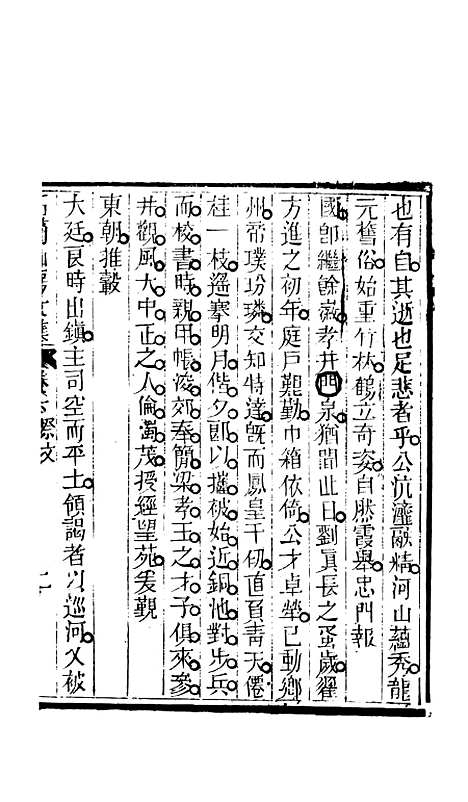 也有自其逝也足悲者乎公沆瀣融精河山蘊秀龍
元督俗始重竹林鶴立奇姿自然霞舉忠門報
國卽繼餘徽孝井西泉猶聞此日劉眞長之蚤歲翟
方進之初年庭戶艱勤巾箱依倚公才卓犖已動鄉
州席璞玢璘交知特達旣而鳳皇千仞直負靑天僊
桂一枝遥搴明月偕夕郎以攡被始近銅池對步兵
而校書時親甲帳凌郊奉簡梁孝王之才子俱來參
井觀風大中正之人倫濁茂授經望苑爰覲
東朝推轂
大廷良時出鎭主司空而平土領謁者以巡河又被
文集 卷 祭文